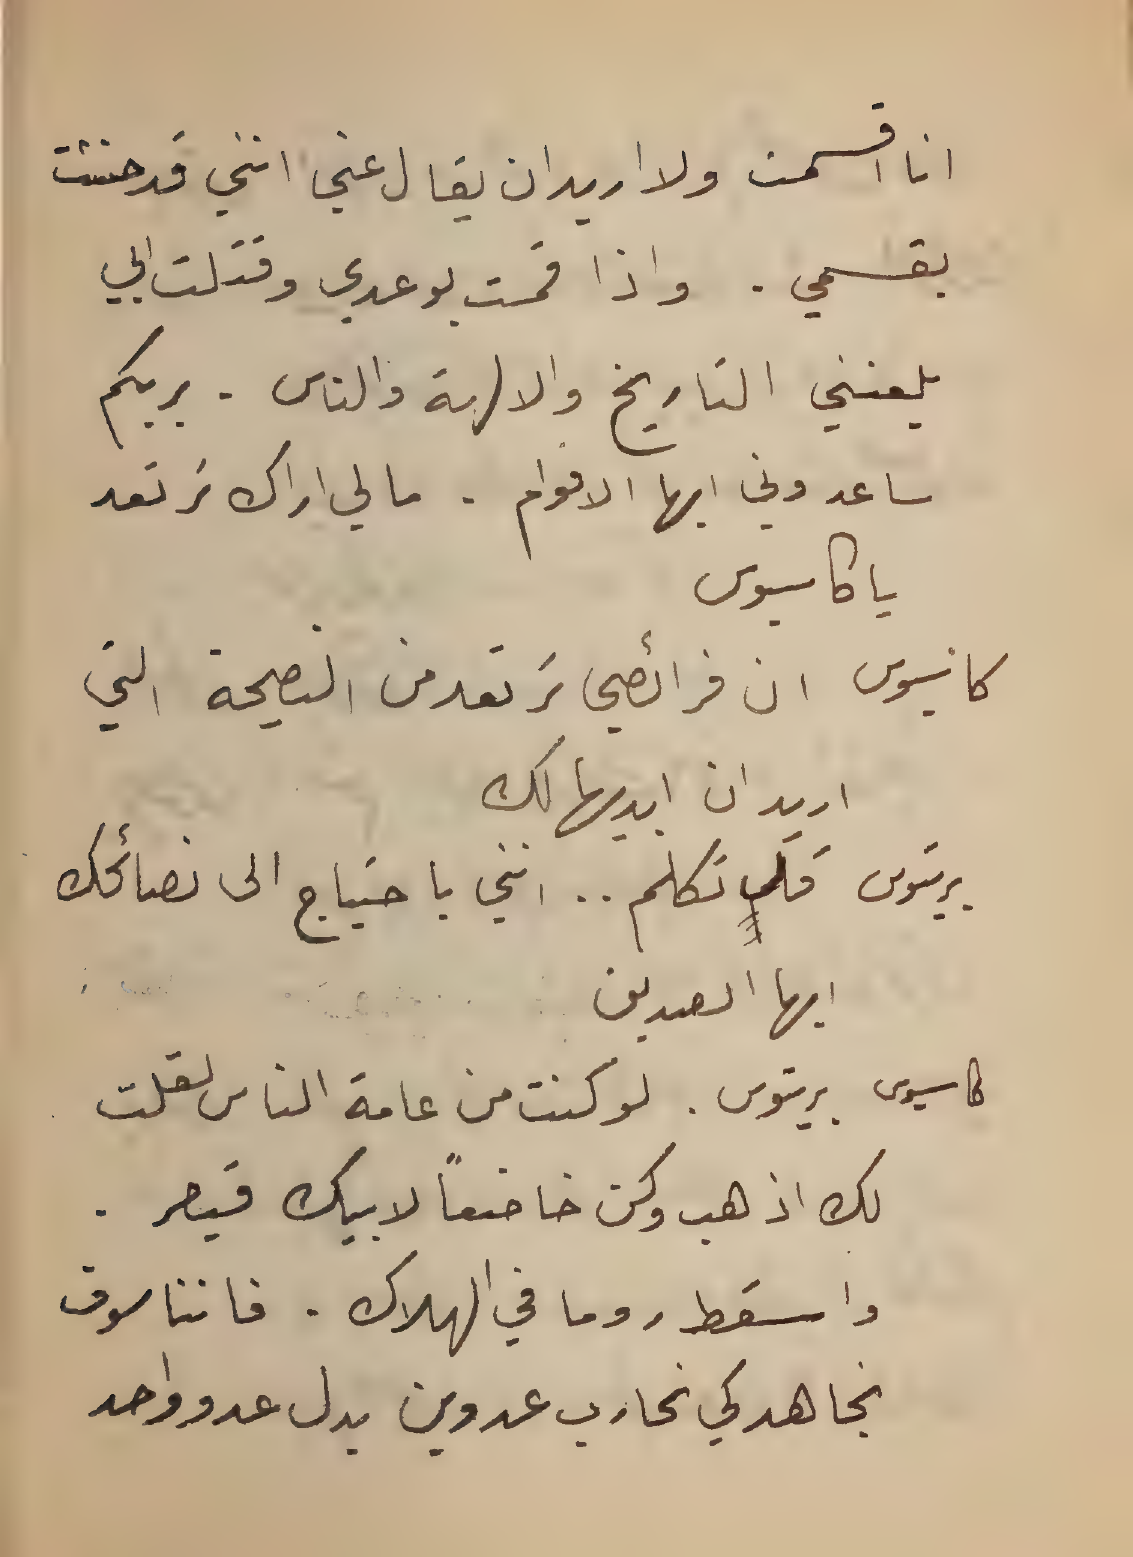 انا اقسمت ولا اريد ان يقال عني انني قد حنثت
بقسمي . واذا قمت بوعدي وقتلت ابي
يلعنني التاريخ والالهة والناس . بربكم
ساعدوني ايها الاقوام . مالي اراك ترتعد
يا كاسيوس
كاسيوس ان فرائصي ترتعد من النصيحة التي
اريد ان ابديها لك
بريتوس تكلم .. انني باحتياج الى نصائحك
ايها الصديق
كاسيوس بريتوس . لو كنت من عامة الناس لقلت
لك اذهب وكن خاضعاً لابيك قيصر .
واسقط روما في الهلاك . فاننا سوف
نجاهد كي نحارب عدوين بدل عدو واحد